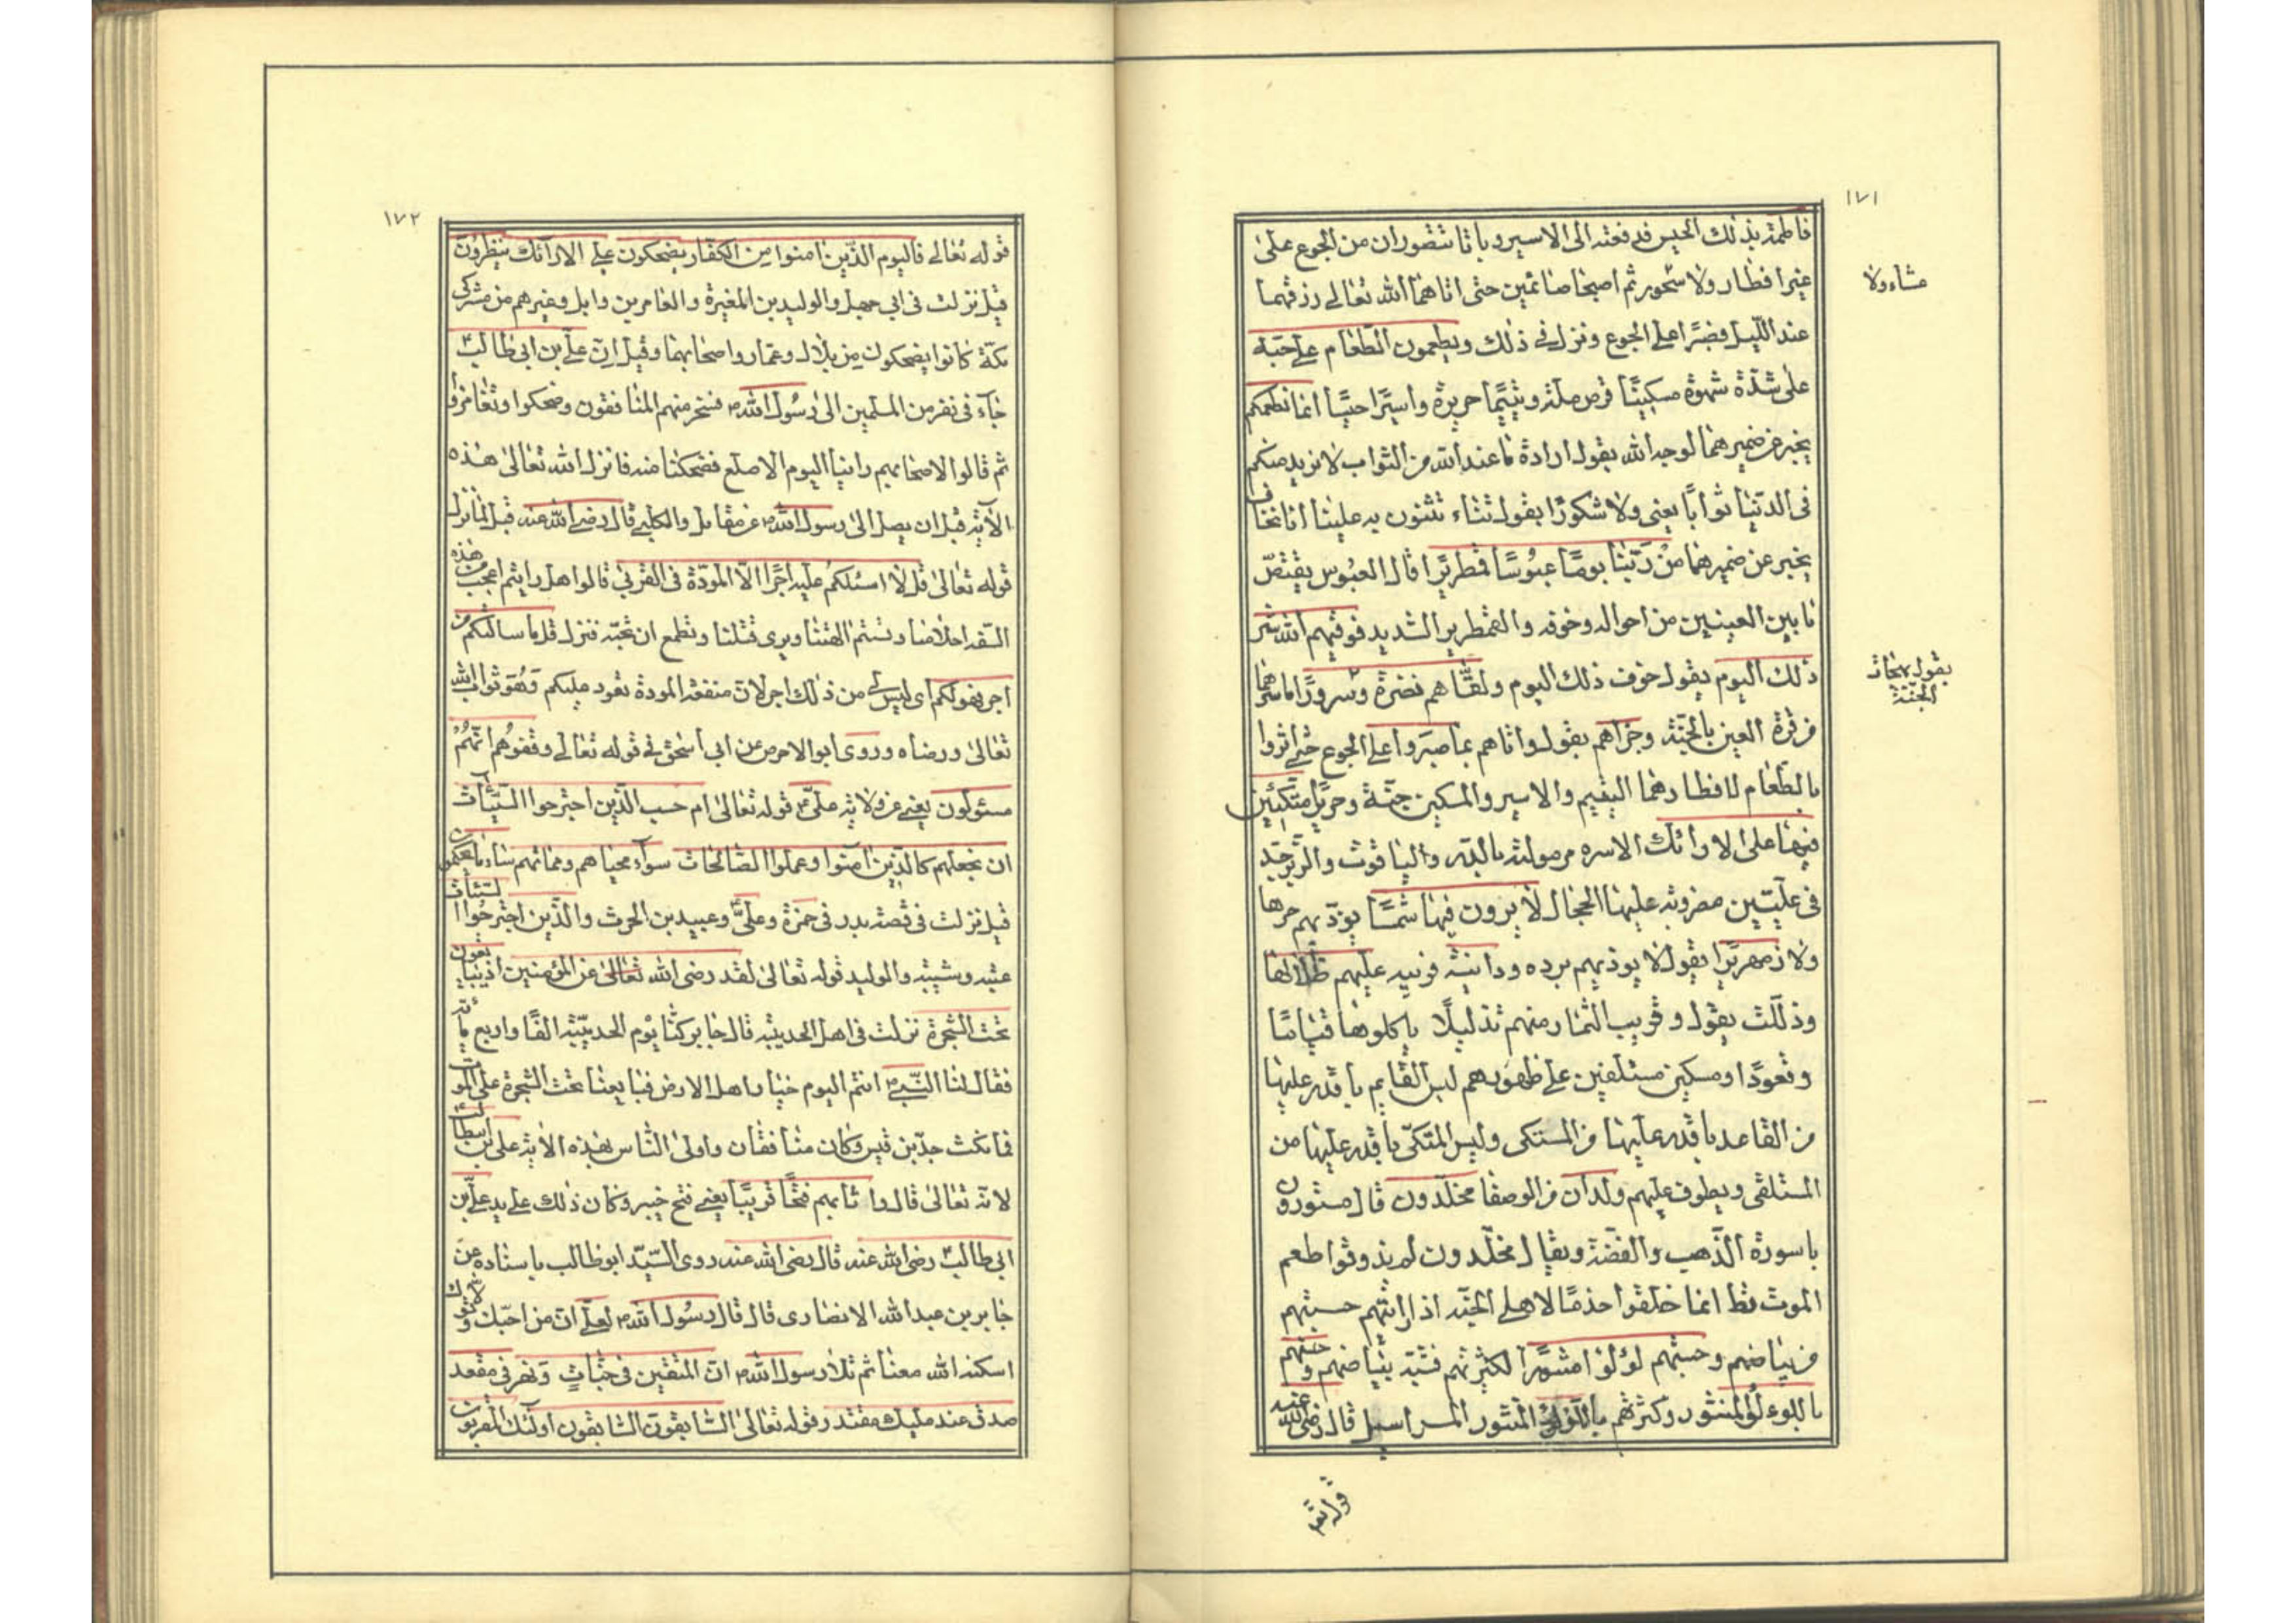 ١٧١
فاطمة بذلك الحيس فدفعته الى الاسير وباتا يتضوران من الجوع على
غير افطار ولا سحور ثم اصبحا صائمين حتى اتاهما الله تعالى رزقهما
عشاء ولا
عند الليل فصبرا على الجوع ونزل فى ذلك ويطعمون الطعام على حبه
على شدة شهوة مسكينًا قرص ملة ويتيمًا حريرة واسيرًا حيسًا انما نطعمكم
يخبر عن ضميرهما لوجه الله يقول ارادة ما عند الله من الثواب لا نريد منكم
فى الدنيا ثوابًا يعنى ولا شكورًا يقول ثناء تثنون به علينا انا نخاف
يخبر عن ضميرهما من ربنا يومًا عبوسًا قمطريرًا قال العبوس يقتض
ما بين العينين من احواله وخوفه والقمطرير الشديد فوقيهم الله شر
ذلك اليوم يقول خوف ذلك اليوم ولقّاهم نضرة وسرورًا لما سرهما
يقول
الجنة
من قرة العين بالجنة وجزاهم يقول واثابهم بما صبروا على الجوع حتى اثروا
بالطعام لافطارهما اليتيم والاسير والمسكين جنة وحريرًا متكئين
فيها على الارائك الاسرة مرمولة بالدر والياقوت والزبرجد
فى عليين مضروبة عليها الحجال لا يرون فيها شمسًا يؤذيهم حرها
ولا زمهريرًا يقول لا يوذيهم برده ودانية قريبه عليهم ظلالها
وذللت يقول وقريب الثمار منهم تذليلًا ياكلونها قيامًا
وقعودًا ومسكين مستلقين على ظهورهم ليس القايم باقدر عليها
من القاعد باقدر عليها من المتكى وليس المتكى باقدر عليها من
المستلقى ويطوف عليهم ولدان من الوصفا مخلدون قال مسورون
باسورة الذهب والفضة ويقال مخلدون لم يذوقوا طعم
الموت قط انما خلقوا خدمًا لاهل الجنه اذا رايتهم حسبتهم
من بياضهم وحسنهم لؤلؤا منثورًا لكثرتهم فشبه بياضهم وحسنهم
باللوءلؤ المنثور وكثرتهم باللؤلؤ المنثور قال رضى الله عنه
قوله تع
١٧٢
قوله تعالى فاليوم الذين امنوا من الكفار يضحكون على الارائك ينظرون
قيل نزلت فى ابي جهل والوليد بن المغيرة والعاص بن وايل وغيرهم من مشركى
مكة كانوا يضحكون من بلال وعمار واصحابهما وقيل ان على بن ابى طالب
جاء فى نفر من المسلمين الى رسول الله م فسخر منهم المنافقون وضحكوا وتغامزوا
ثم قالوا لاصحابهم راينا اليوم الاصلع فضحكنا منه فانزل الله تعالى هذه
الاية قبل ان يصل الى رسول الله م عن مقاتل والكلبى قال رضى الله عنه قيل لما نزل
قوله تعالى قل لا اسئلكم عليه اجرًا الا المودة فى القربى قالوا هل رايتم اعجب من هذه
السفه احلامنا وشتم الهتنا ويرى قتلنا ونطمع ان نحبه فنزل قل ما سالتكم من
اجر فهو لكم اى ليس لى من ذلك اجر لان منفعة المودة تعود عليكم وهو ثواب الله
تعالى ورضاه وروى ابو الاحوص عن ابى اسحق فى قوله تعالى وقفوهم انهم
مسئولون يعنى عن ولاية على ع قوله تعالى ام حسب الذين اجترحوا السيئات
ان نجعلهم كالذين امنوا وعملوا الصالحات سواء محياهم ومماتهم ساء ما يحكمون
قيل نزلت فى قصة بدر فى حمزة وعلى وعبيد بن الحرث والذين اجترحوا السيئات
عتبه وشيبه والوليد قوله تعالى لقد رضى الله تعالى عن المؤمنين اذ يبايعونك
تحت الشجرة نزلت فى اهل الحديبية قال جابر كنا يوم الحديبية الفًا واربع مائة
فقال لنا النبى م انتم اليوم خيار اهل الارض فبايعنا تحت الشجرة على الموت
فما نكث جد بن قيس وكان منافقًا واولى الناس بهذه الاية على بن
لانه تعالى قال واثابهم فتحًا قريبًا يعنى فتح خيبر وكان ذلك على يد على بن
ابى طالب رضى الله عنه قال رضى الله عنه روى السيد ابو طالب باسناده عن
جابر بن عبد الله الانصارى قال قال رسول الله م لعلى ان من احبك وتولاك
اسكنه الله معنا ثم تلا رسول الله م ان المتقين فى جنات ونهر فى مقعد
صدق عند مليك مقتدر وقوله تعالى السابقون السابقون اولئك المقربون